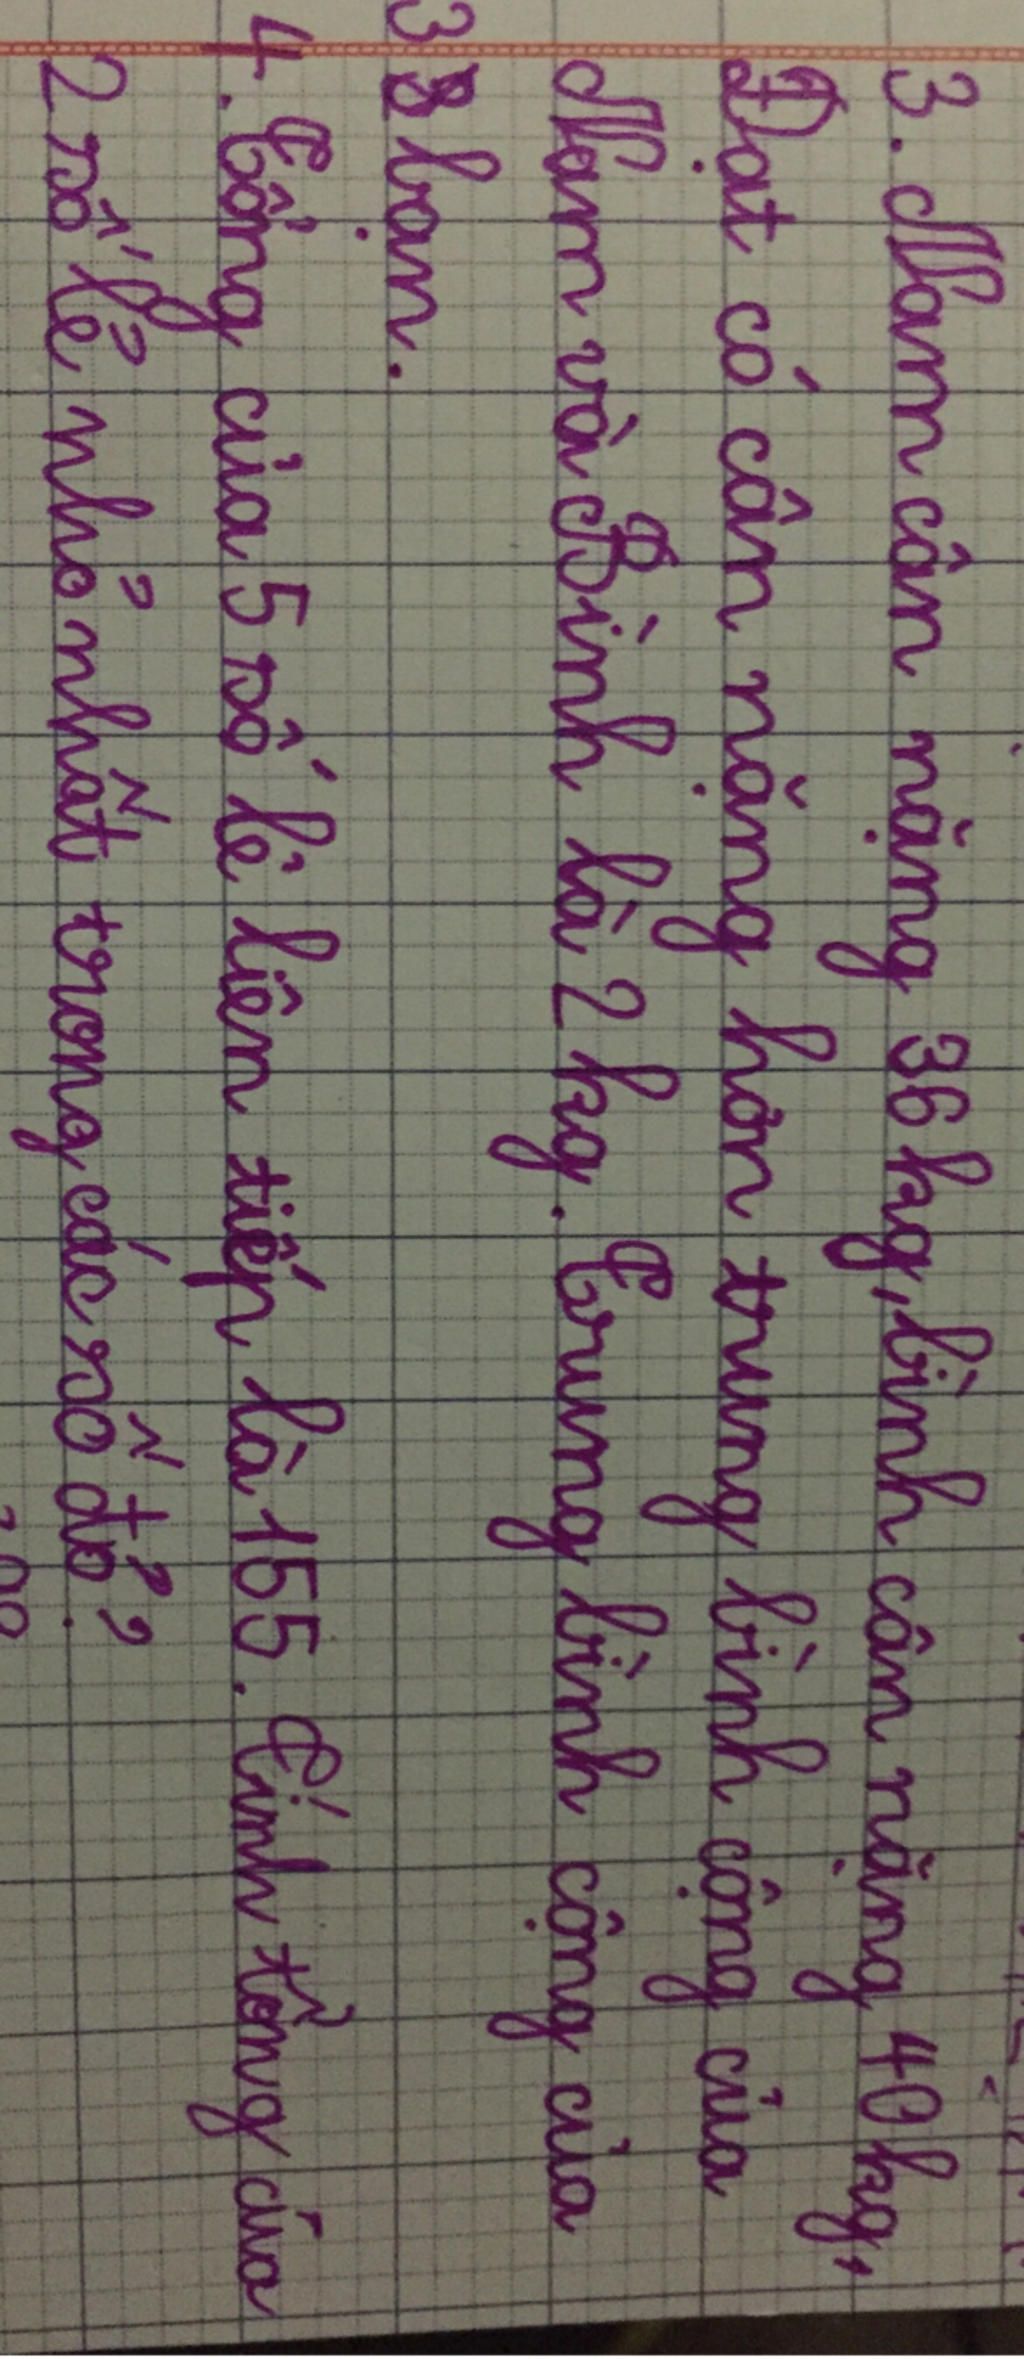 3. Nam cân nặng 36 kg, bình cân nặng 40 kg,
Đạt có cân nặng hơn trung bình cộng của
Nam và Bình là 2 kg. Trung bình cộng của
3 bạn.
4. Tổng của 5 số lẻ liên tiếp là 155. Tính tổng của
2 số lẻ nhỏ nhất trong các số đó?